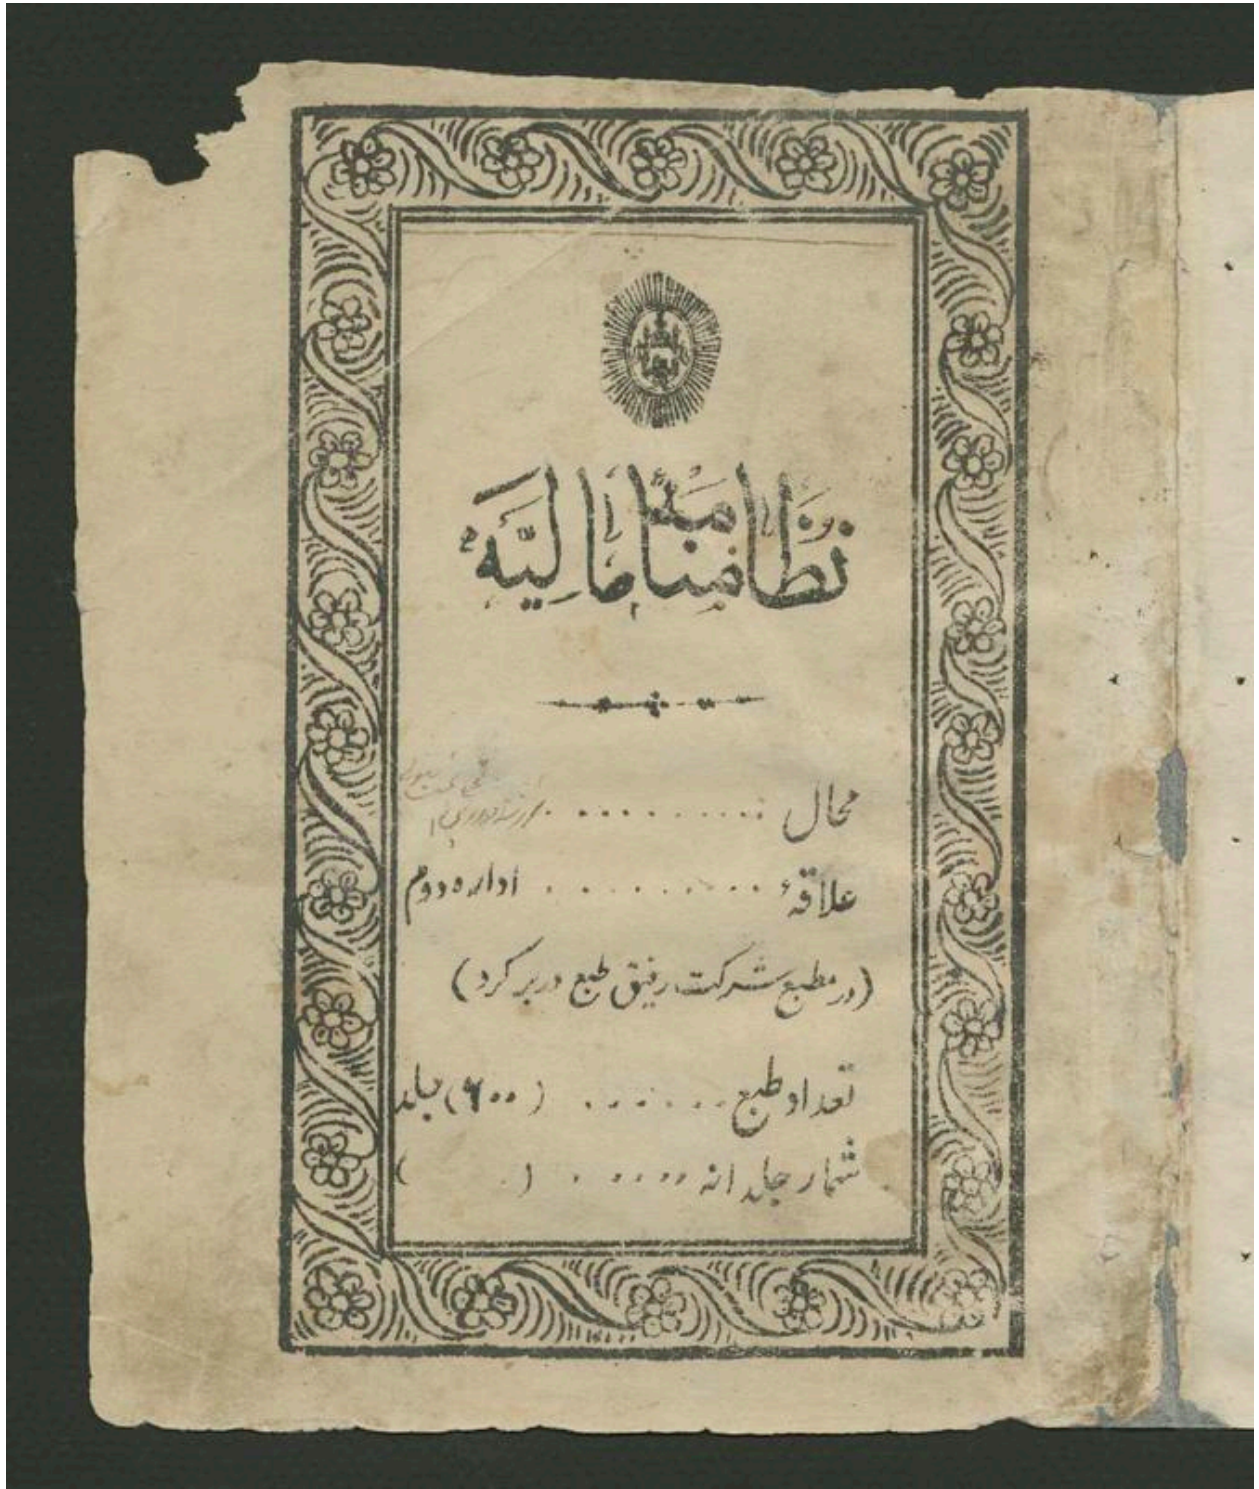 نظامنامهٔ مالیّه
محال . . . . . . . . .
علاقهٔ . . . . . . . . . اداره دوم
(در مطبع شرکت رفیق طبع دربر کرد)
تعداد طبع . . . . . . . (۶۰۰) جلد
شمار جلد انه . . . . . . ( )